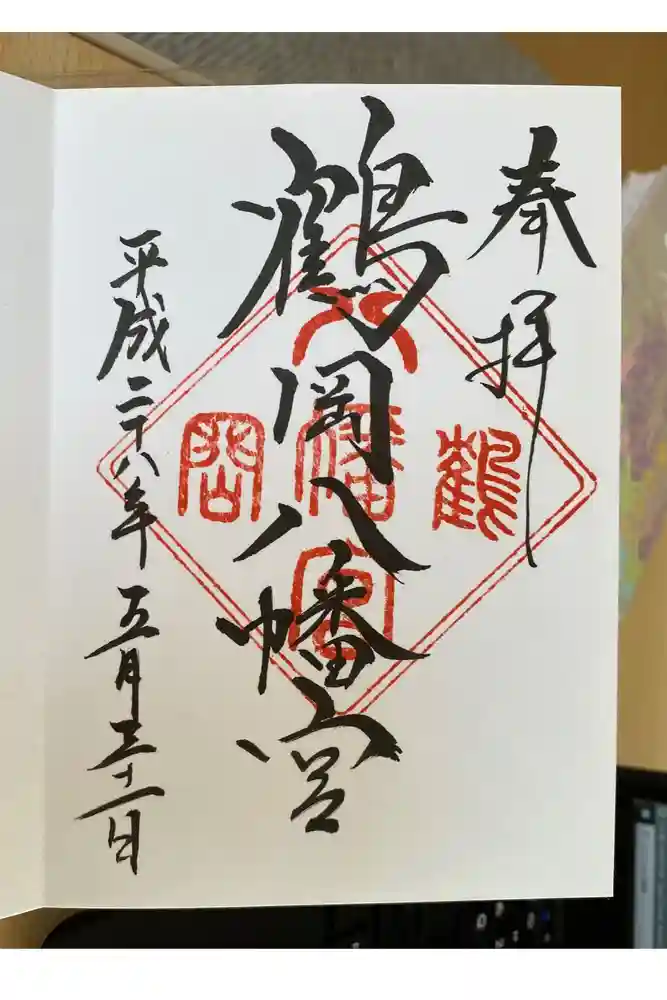 奉拝
鶴岡八幡宮
平成二十八年五月三十一日
鶴
岡
八幡宮